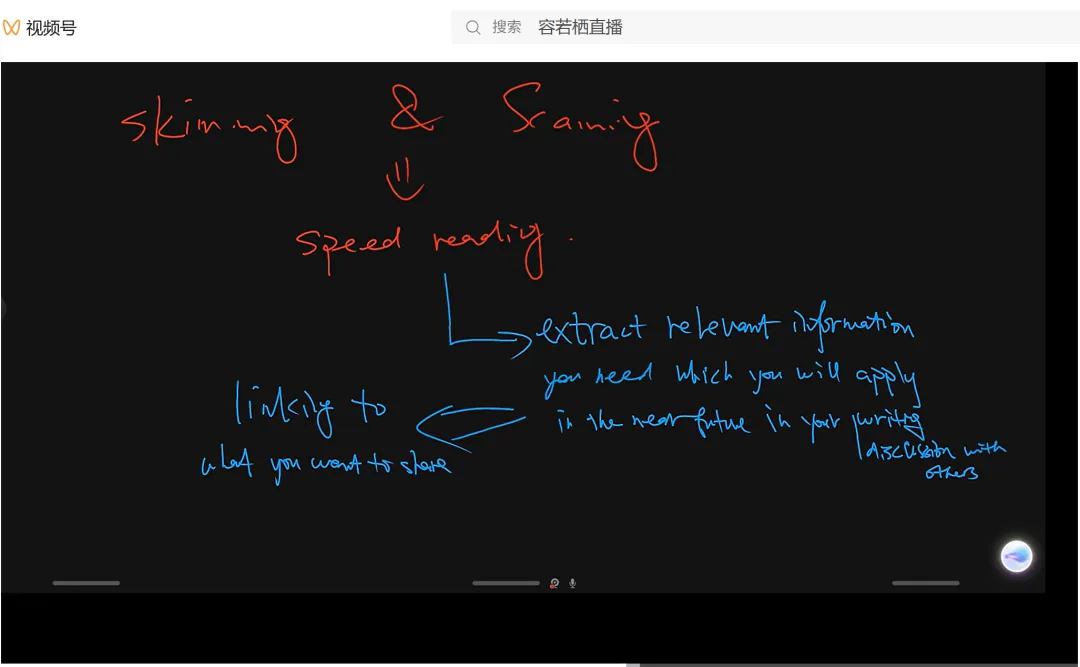 视频号
搜索 容若栖直播
skimming & Scaning
speed reading.
extract relevant information
you need which you will apply
in the near future in your writing
discussion with
others
linking to
what you want to share